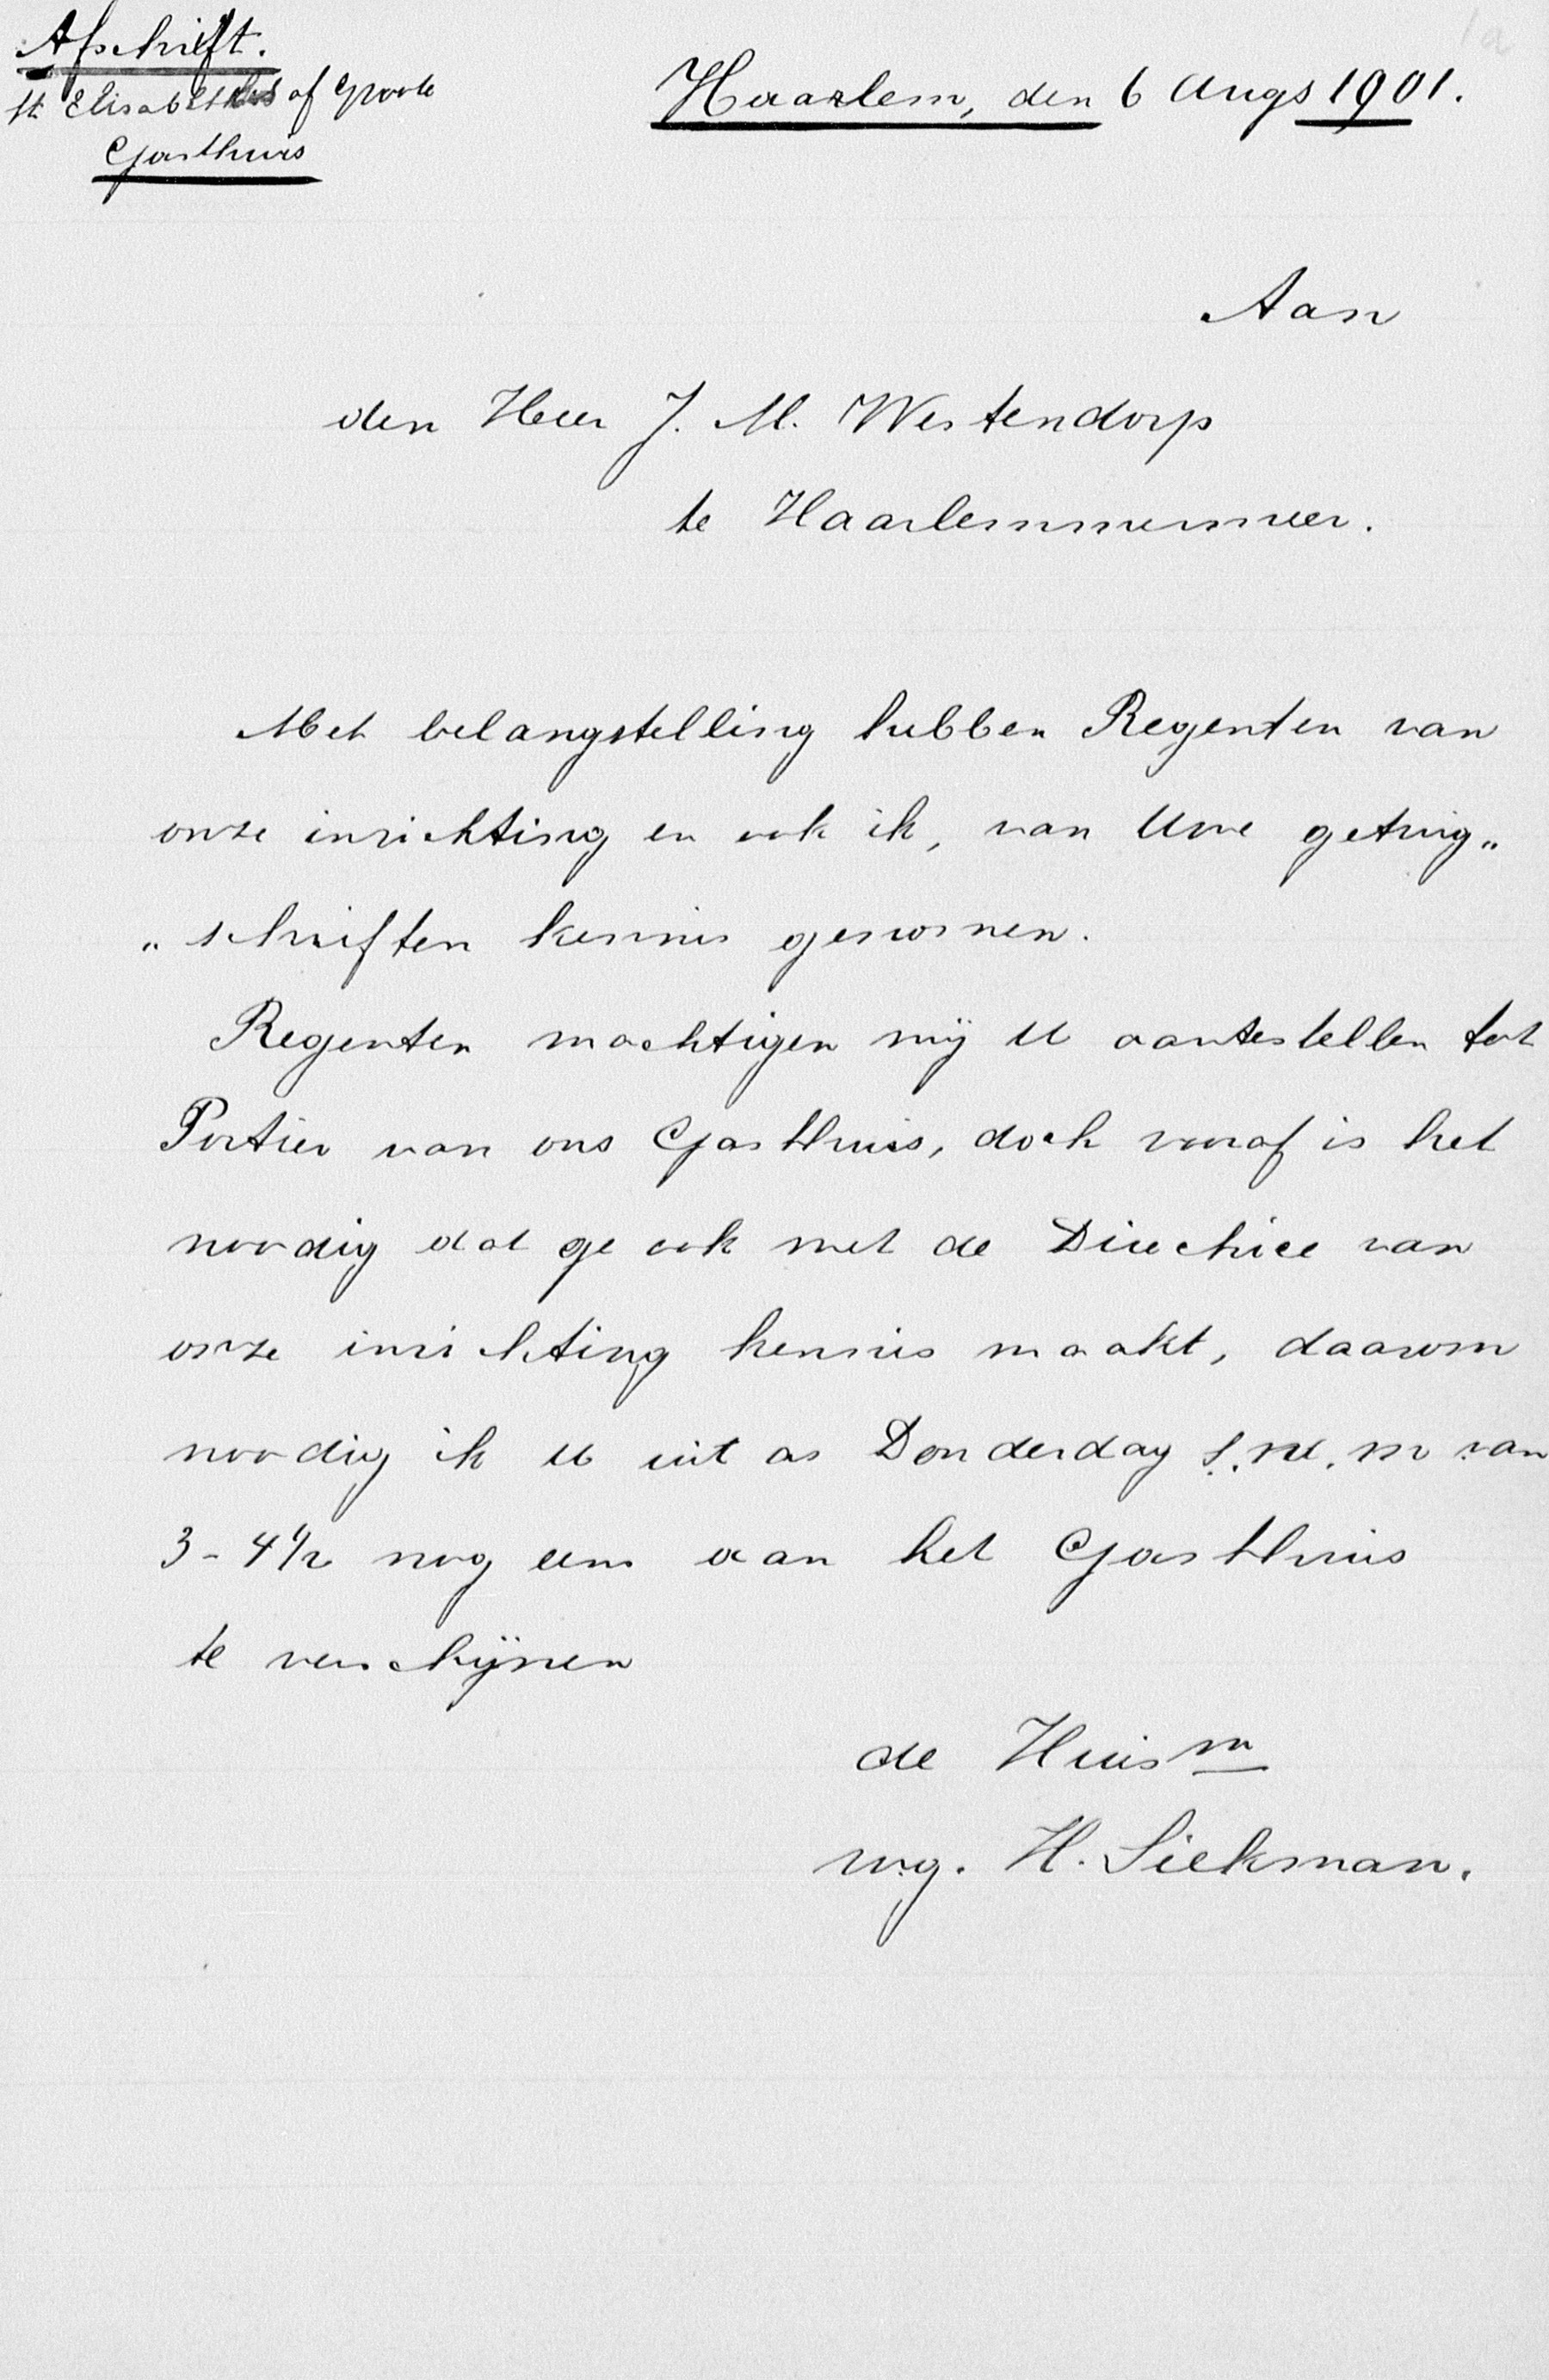 1a
Afschrift.
St Elisabeths of Groote
Gasthuis
Haarlem, den 6 Augs 1901.
Aan
den Heer J. M. Westendorp
te Haarlemmermeer.
Met belangstelling hebben Regenten van
onze inrichting en ook ik, van Uwe getuig„
„schriften kennis genomen.
Regenten machtigen mij U aantestellen tot
Portier van ons Gasthuis, doch vooraf is het
noodig dat ge ook met de Directrice van
onze inrichting kennis maakt, daarom
noodig ik U uit as Donderdag s. nl. m van
3 - 4 1/2 nog eens aan het Gasthuis
te verschijnen
de Huism
wg. H. Siekman.